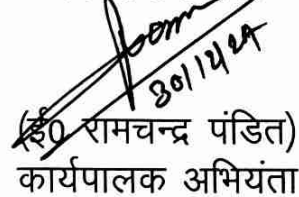 30/12/24
(ई0 रामचन्द्र पंडित)
कार्यपालक अभियंता